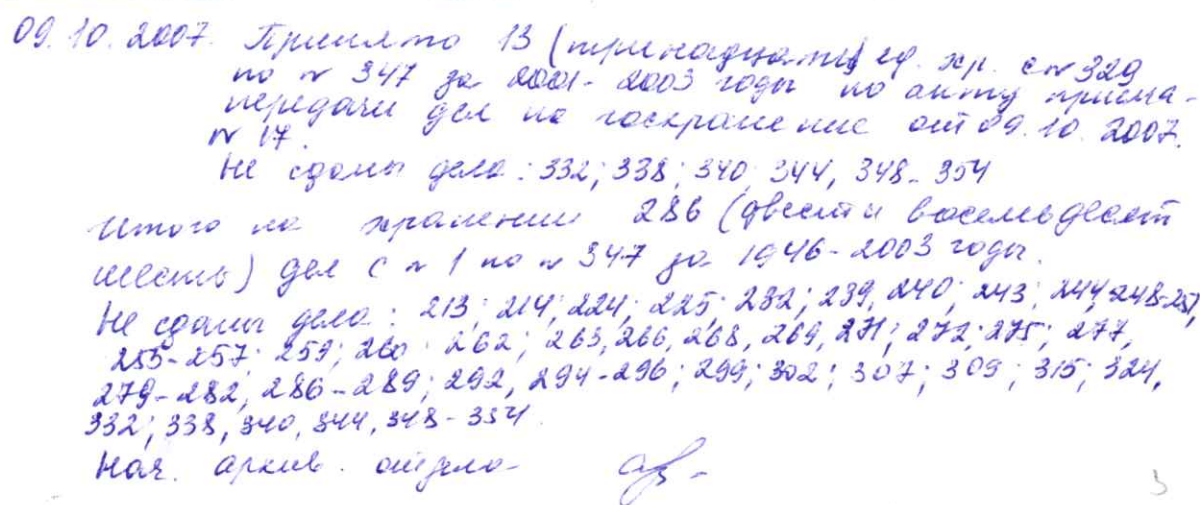 09.10.2007. Принято 13 (тринадцать) ед. хр. с № 329
по № 347 за 2001-2003 годы по акту приема-
передачи дел на госхранение от 09.10.2007.
№ 17.
Не сданы дела: 332; 338; 340, 344, 348-354
Итого на хранении 286 (двести восемьдесят
шесть) дел с № 1 по № 347 за 1946-2003 годы.
Не сданы дела: 213; 214; 224; 225; 232; 239, 240; 243; 244, 248-251,
255-257; 259; 260; 262; 263, 266, 268, 269, 271; 272; 275; 277,
279-282, 286-289; 292, 294-296; 299; 302; 307; 309; 315; 324,
332; 338, 340, 344, 348-354.
Нач. архив. отдела
3